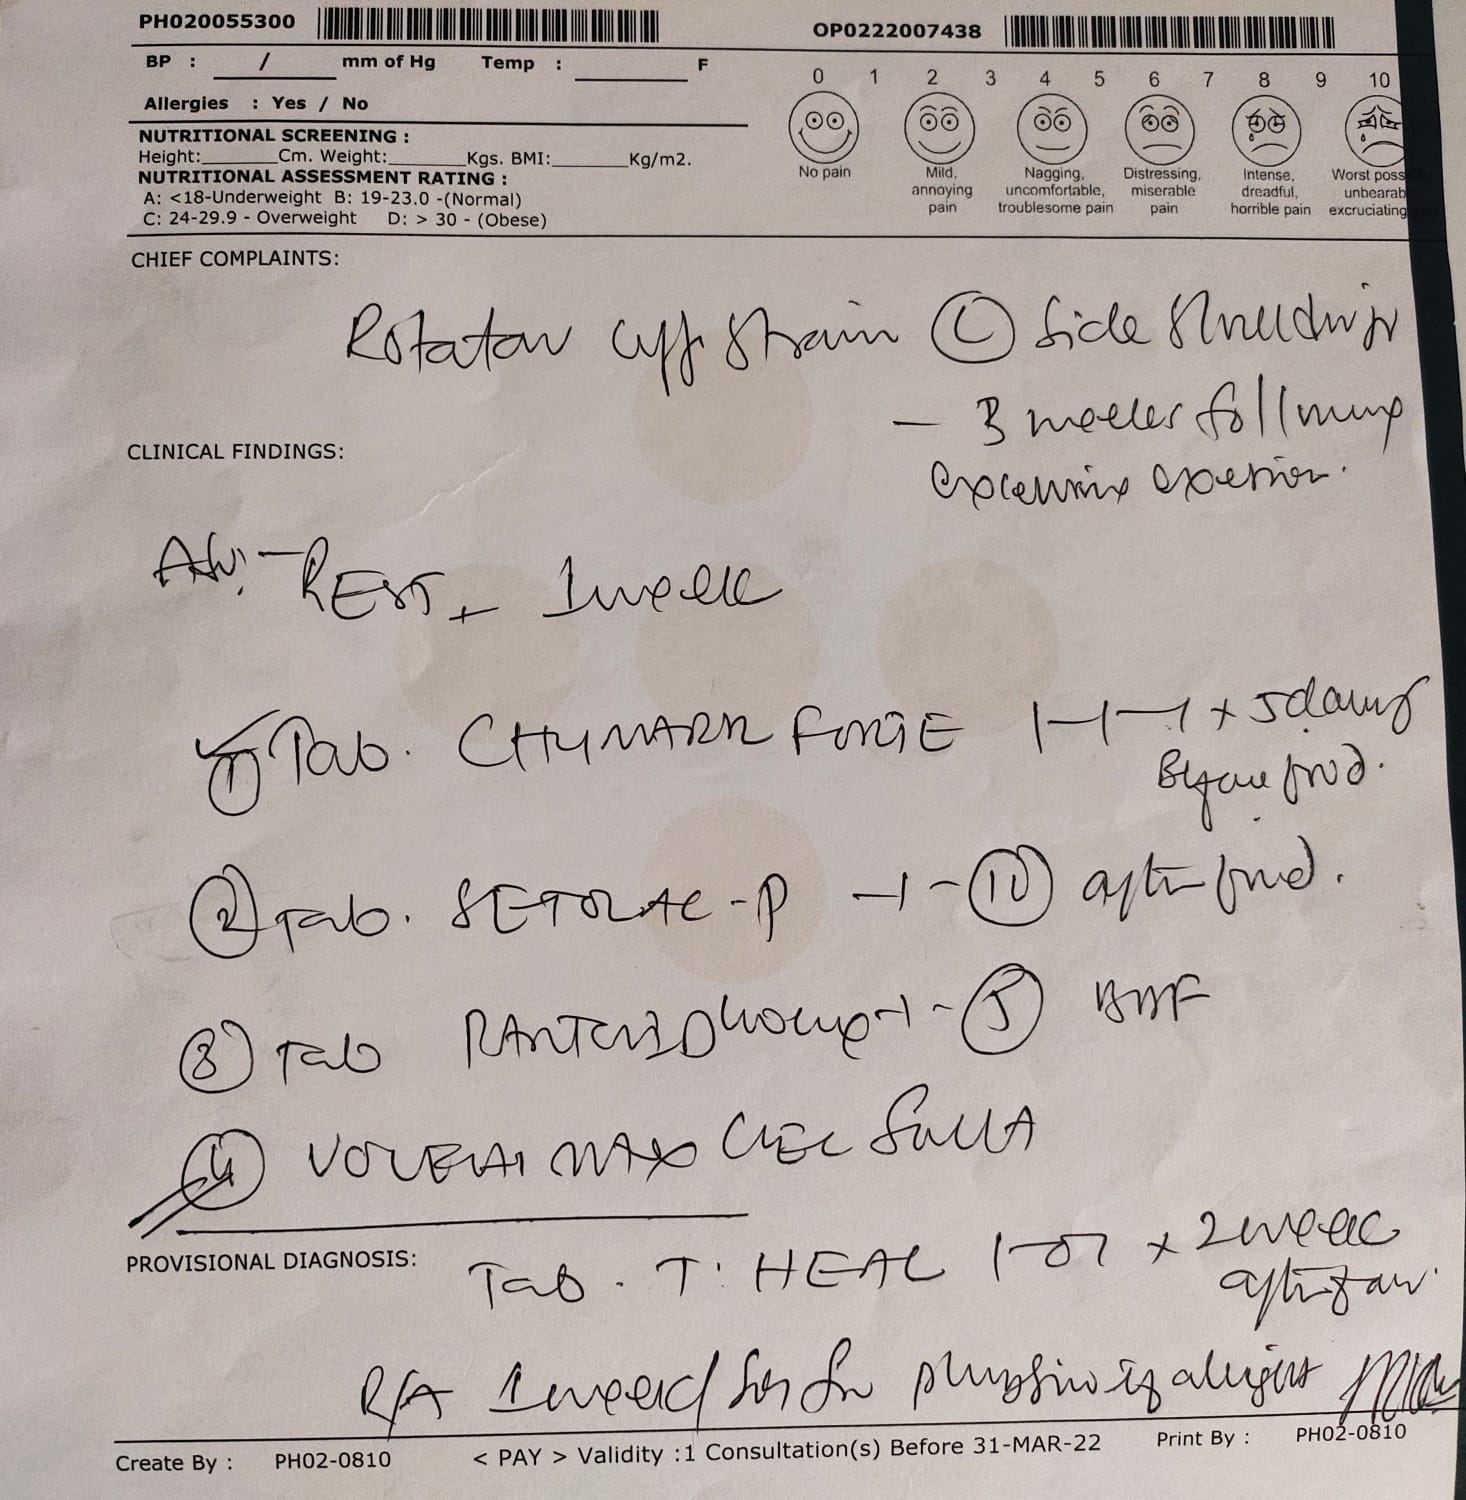 PH020055300 OP0222007438
BP : / mm of Hg Temp : F
0 1 2 3 4 5 6 7 8 9 10
Allergies : Yes / No
NUTRITIONAL SCREENING :
Height: Cm. Weight: Kgs. BMI: Kg/m2.
NUTRITIONAL ASSESSMENT RATING :
A: <18-Underweight B: 19-23.0 -(Normal)
C: 24-29.9 - Overweight D: > 30 - (Obese)
No pain
Mild,
annoying
pain
Nagging,
uncomfortable,
troublesome pain
Distressing,
miserable
pain
Intense,
dreadful,
horrible pain
Worst poss
unbearab
excruciating
CHIEF COMPLAINTS:
Rotator cuff strain Ⓛ side
- 3 weeks following
excessive exertion.
CLINICAL FINDINGS:
Adv:- REST + 1 week
① Tab. CHYMORAL FORTE 1-1-1 x 5 days
Before food.
② Tab. SETOLAC-P -1- ⑩ after food.
③ Tab PANTOCID 40mg -1- ⑤ BBF
④ MAX GEL
PROVISIONAL DIAGNOSIS: Tab. T. HEAL 1-0-1 x 2 week
after
R/A 1 week
Create By : PH02-0810 < PAY > Validity :1 Consultation(s) Before 31-MAR-22 Print By : PH02-0810